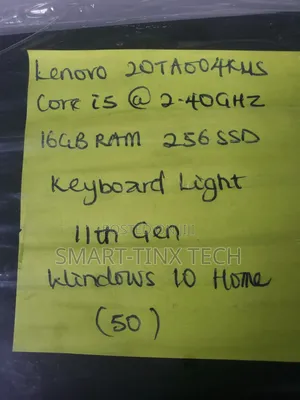 Lenovo 20TA004KUS
Core i5 @ 2.40GHZ
16GB RAM 256SSD
Keyboard Light
11th Gen
SMART-TINX TECH
Windows 10 Home
(50)